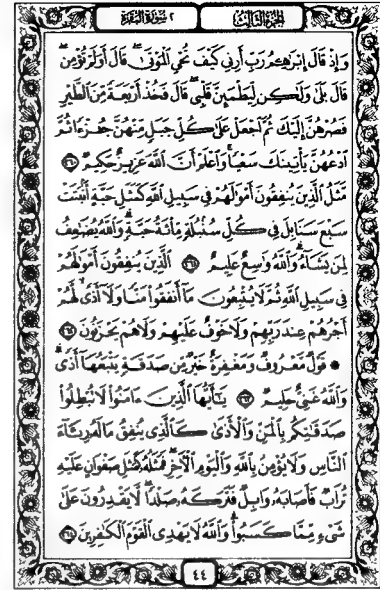 الجزء الثالث
٢ سورة البقرة
وَإِذْ قَالَ إِبْرَٰهِـۧمُ رَبِّ أَرِنِى كَيْفَ تُحْىِ ٱلْمَوْتَىٰ ۖ قَالَ أَوَلَمْ تُؤْمِن ۖ
قَالَ بَلَىٰ وَلَـٰكِن لِّيَطْمَئِنَّ قَلْبِى ۖ قَالَ فَخُذْ أَرْبَعَةً مِّنَ ٱلطَّيْرِ
فَصُرْهُنَّ إِلَيْكَ ثُمَّ ٱجْعَلْ عَلَىٰ كُلِّ جَبَلٍ مِّنْهُنَّ جُزْءًا ثُمَّ
ٱدْعُهُنَّ يَأْتِينَكَ سَعْيًا ۚ وَٱعْلَمْ أَنَّ ٱللَّهَ عَزِيزٌ حَكِيمٌ ﴿٢٦٠﴾
مَّثَلُ ٱلَّذِينَ يُنفِقُونَ أَمْوَٰلَهُمْ فِى سَبِيلِ ٱللَّهِ كَمَثَلِ حَبَّةٍ أَنۢبَتَتْ
سَبْعَ سَنَابِلَ فِى كُلِّ سُنۢبُلَةٍ مِّا۟ئَةُ حَبَّةٍ ۗ وَٱللَّهُ يُضَـٰعِفُ
لِمَن يَشَآءُ ۗ وَٱللَّهُ وَٰسِعٌ عَلِيمٌ ﴿٢٦١﴾ ٱلَّذِينَ يُنفِقُونَ أَمْوَٰلَهُمْ
فِى سَبِيلِ ٱللَّهِ ثُمَّ لَا يُتْبِعُونَ مَآ أَنفَقُوا۟ مَنًّا وَلَآ أَذًى ۙ لَّهُمْ
أَجْرُهُمْ عِندَ رَبِّهِمْ وَلَا خَوْفٌ عَلَيْهِمْ وَلَا هُمْ يَحْزَنُونَ ﴿٢٦٢﴾
۞ قَوْلٌ مَّعْرُوفٌ وَمَغْفِرَةٌ خَيْرٌ مِّن صَدَقَةٍ يَتْبَعُهَآ أَذًى ۗ
وَٱللَّهُ غَنِىٌّ حَلِيمٌ ﴿٢٦٣﴾ يَـٰٓأَيُّهَا ٱلَّذِينَ ءَامَنُوا۟ لَا تُبْطِلُوا۟
صَدَقَـٰتِكُم بِٱلْمَنِّ وَٱلْأَذَىٰ كَٱلَّذِى يُنفِقُ مَالَهُۥ رِئَآءَ
ٱلنَّاسِ وَلَا يُؤْمِنُ بِٱللَّهِ وَٱلْيَوْمِ ٱلْـَٔاخِرِ ۖ فَمَثَلُهُۥ كَمَثَلِ صَفْوَانٍ عَلَيْهِ
تُرَابٌ فَأَصَابَهُۥ وَابِلٌ فَتَرَكَهُۥ صَلْدًا ۖ لَّا يَقْدِرُونَ عَلَىٰ
شَىْءٍ مِّمَّا كَسَبُوا۟ ۗ وَٱللَّهُ لَا يَهْدِى ٱلْقَوْمَ ٱلْكَـٰفِرِينَ ﴿٢٦٤﴾
٤٤